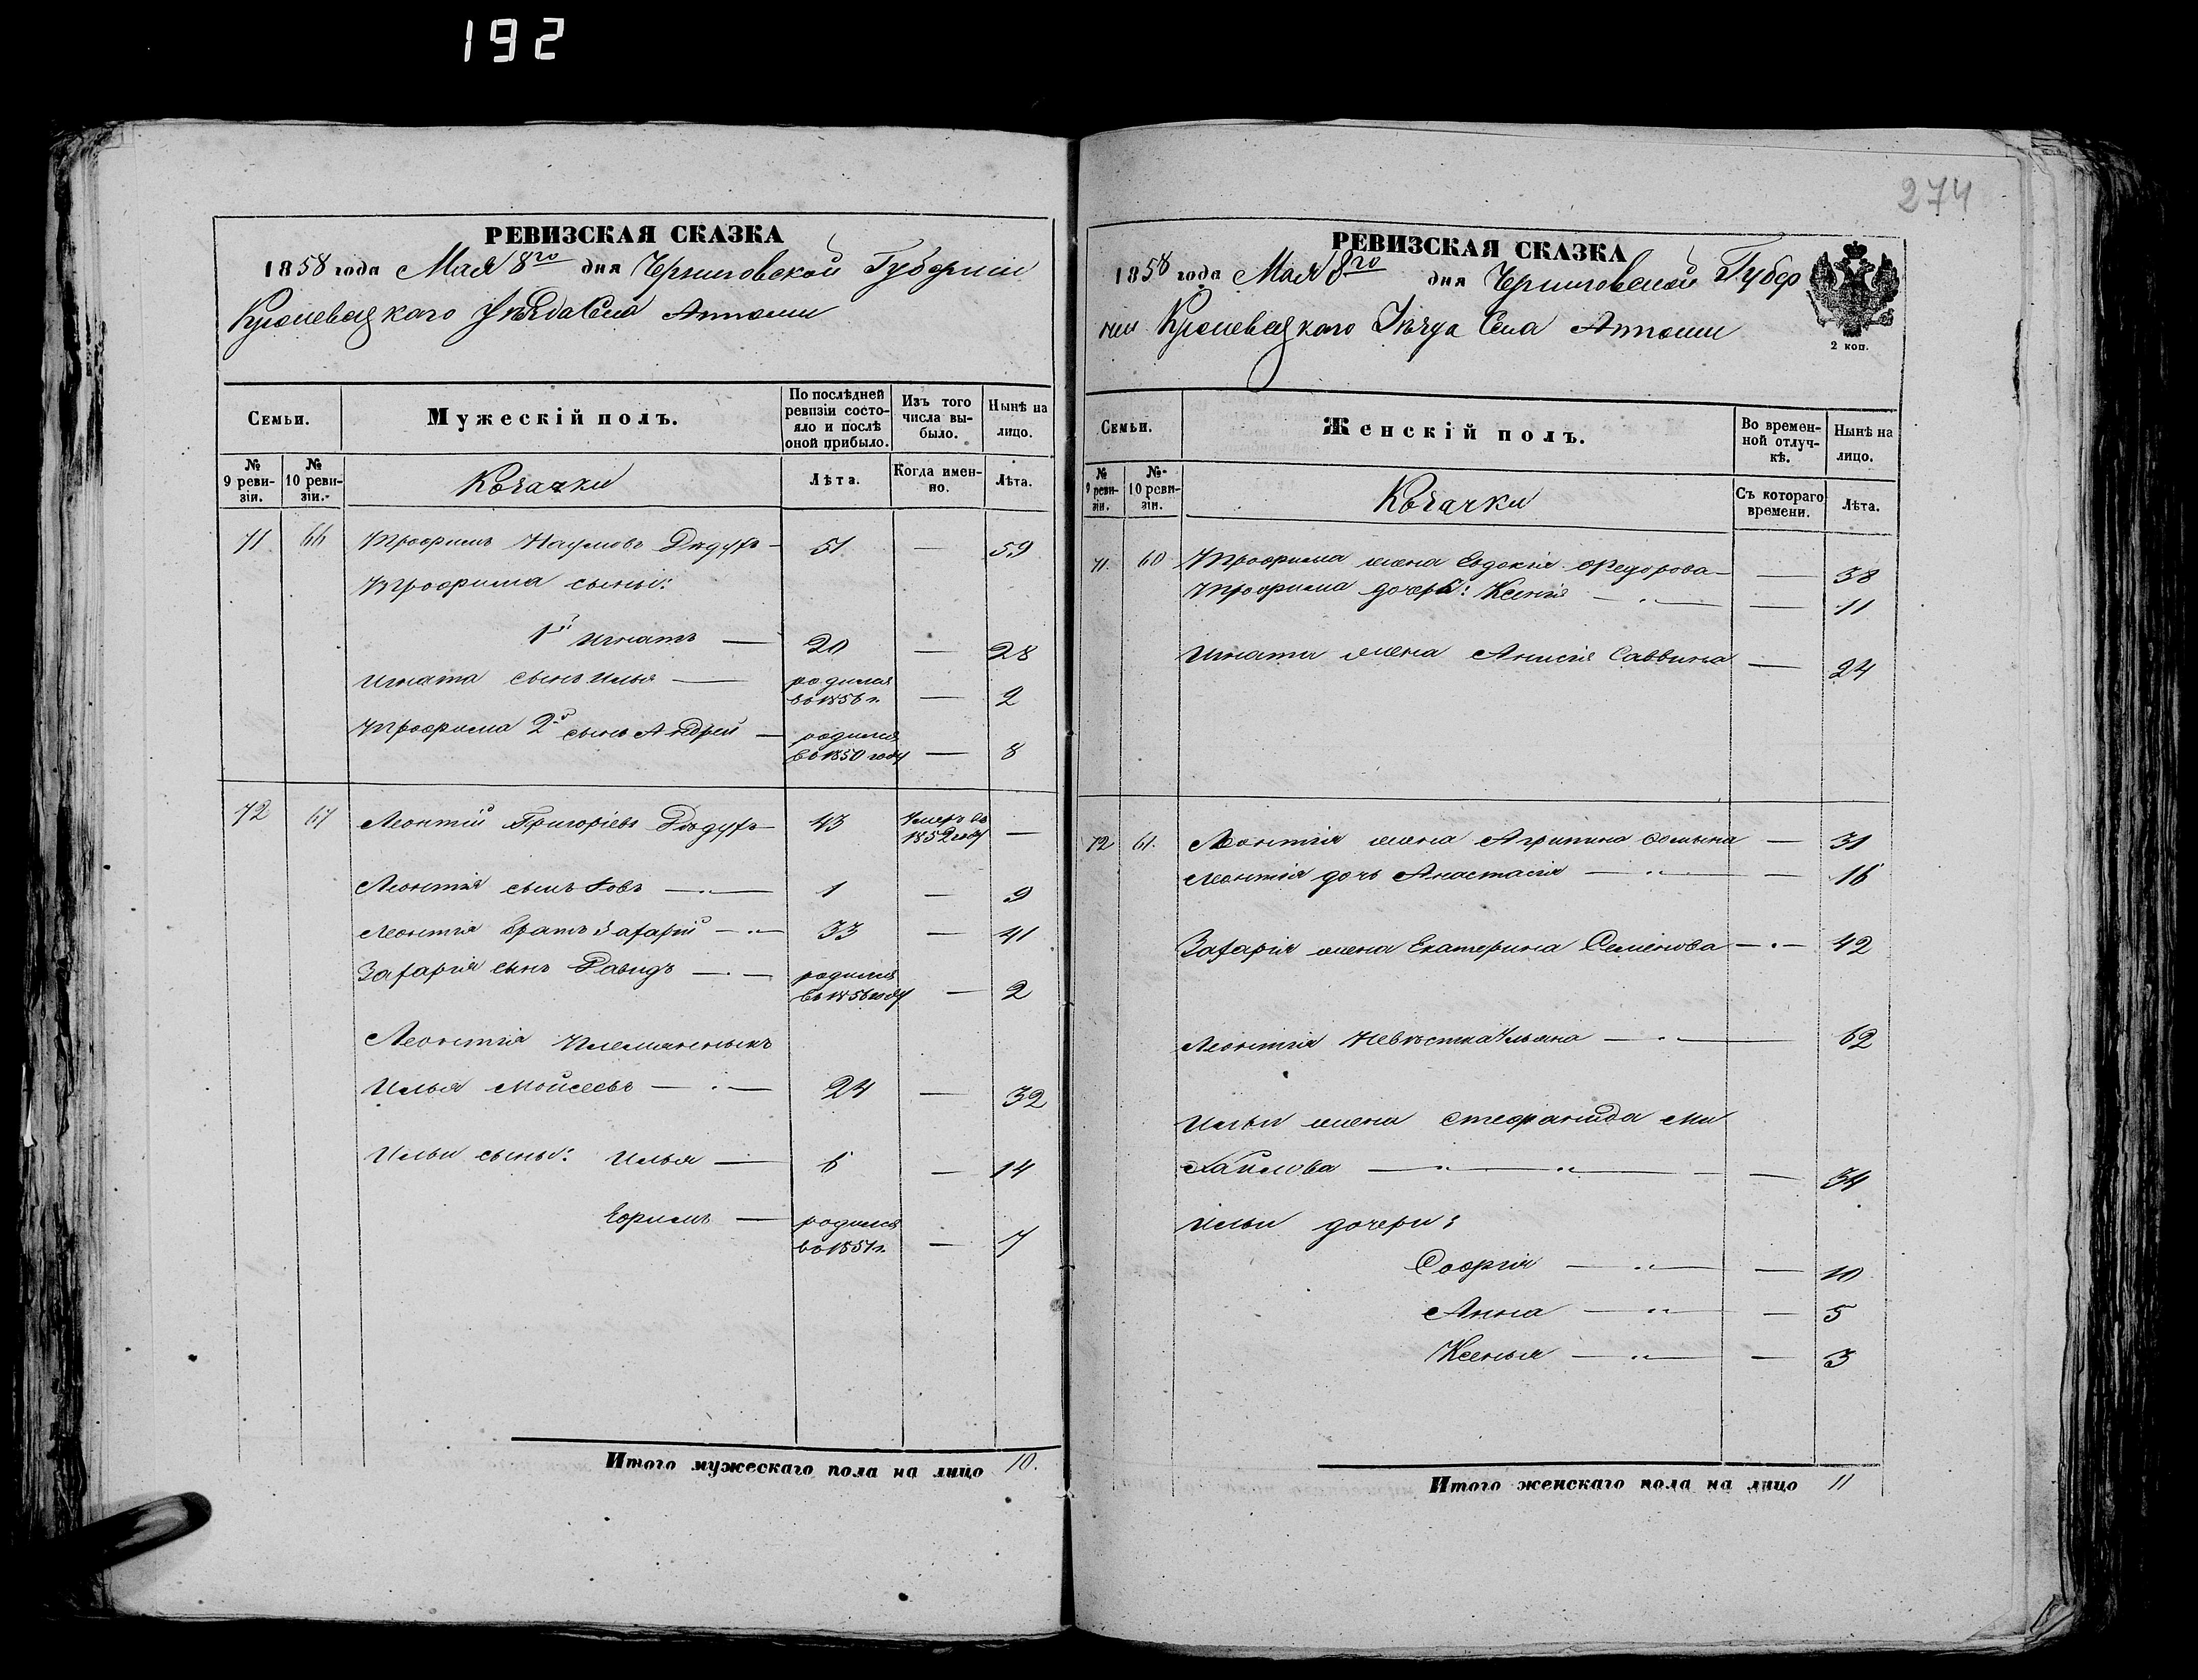 192
РЕВИЗСКАЯ СКАЗКА
1858 года Мая 8го дня Черниговской Губерніи
Кролевецкаго Уѣзда Села
Семьи.
Мужескій полъ.
По послѣдней ревизіи состояло и послѣ оной прибыло.
Изъ того числа выбыло.
Нынѣ на лицо.
№ 9 ревизіи.
№ 10 ревизіи.
Лѣта.
Когда именно.
Лѣта.
71 66 Трофимъ Наумовъ — 51 — 59
Трофима сыны:
1й Игнатъ — 20 — 28
Игната сынъ Илья — родился въ 1856 г. — 2
Трофима 2й сынъ Андрей — родился въ 1850 году — 8
72 67 Леонтій Григоріевъ — 43 Умеръ въ 1852 году —
Леонтія сынъ Іовъ — 1 — 9
Леонтія братъ Захарій — 33 — 41
Захарія сынъ Давидъ — родился въ 1856 году — 2
Леонтія племянныкъ
Илья Мойсеевъ — 24 — 32
Ильи сыны: Илья — 6 — 14
Ефимъ — родился въ 1851 г. — 7
Итого мужескаго пола на лицо 10.
274
РЕВИЗСКАЯ СКАЗКА
1858 года Мая 8го дня Черниговской Губер
ніи Кролевецкаго Уѣзда Села
2 коп.
Семьи.
Женскій полъ.
Во временной отлучкѣ.
Нынѣ на лицо.
№ 9 ревизіи.
№ 10 ревизіи.
Съ котораго времени.
Лѣта.
71. 60 Трофима жена Евдокія Федорова — 38
Трофима дочерь: Ксенія — 11
Игната жена Анисія Саввина — 24
72 61. Леонтія жена Агрипина — 31
Леонтія дочь Анастасія — 16
Захарія жена Екатерина Семенова — 42
Леонтія Невѣстка Ульяна — 62
Ильи жена Стефанида Ми
хайлова — 34
Ильи дочери:
Софія — 10
Анна — 5
Ксенья — 3
Итого женскаго пола на лицо 11